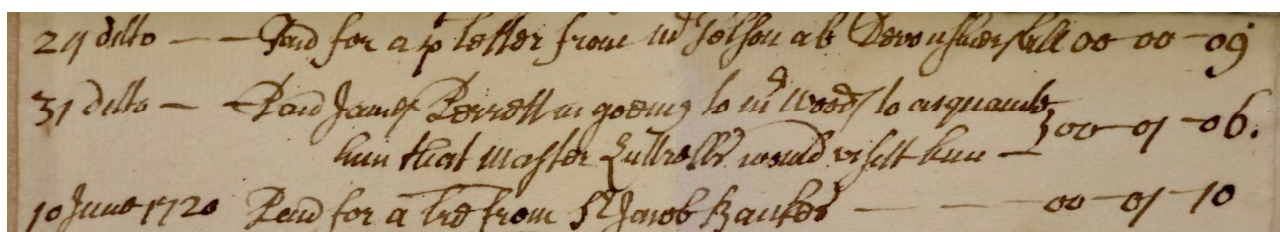 29 ditto — — Paid for a letter from Mr Jolson ab Devonshier 00–00–09
31 ditto — Paid James Perrett in goeing to Mr Woods to acquainte
him that Master Luttrell would visitt him — } 00–01–06.
10 June 1720 Paid for a Lre from Sr Jacob Bankes — — — 00–01–10